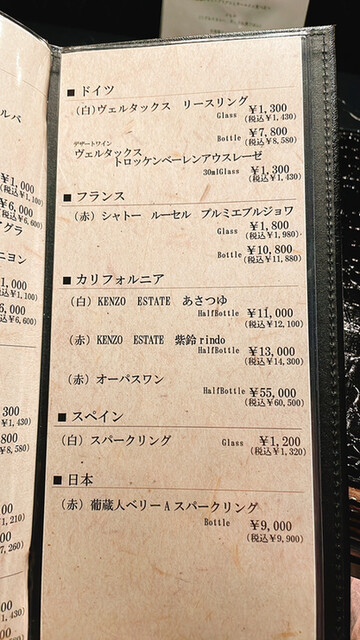 ■ ドイツ
(白)ヴェルタックス リースリング
Glass ¥1,300
(税込¥1,430)
Bottle ¥7,800
(税込¥8,580)
デザートワイン
ヴェルタックス
トロッケンベーレンアウスレーゼ
30mlGlass ¥1,300
(税込¥1,430)
■ フランス
(赤)シャトー ルーセル プルミエブルジョワ
Glass ¥1,800
(税込¥1,980)
Bottle ¥10,800
(税込¥11,880)
■ カリフォルニア
(白)KENZO ESTATE あさつゆ
HalfBottle ¥11,000
(税込¥12,100)
(赤)KENZO ESTATE 紫鈴rindo
HalfBottle ¥13,000
(税込¥14,300)
(赤)オーパスワン
HalfBottle ¥55,000
(税込¥60,500)
■ スペイン
(白)スパークリング Glass ¥1,200
(税込¥1,320)
■ 日本
(赤)葡蔵人ベリーAスパークリング
Bottle ¥9,000
(税込¥9,900)